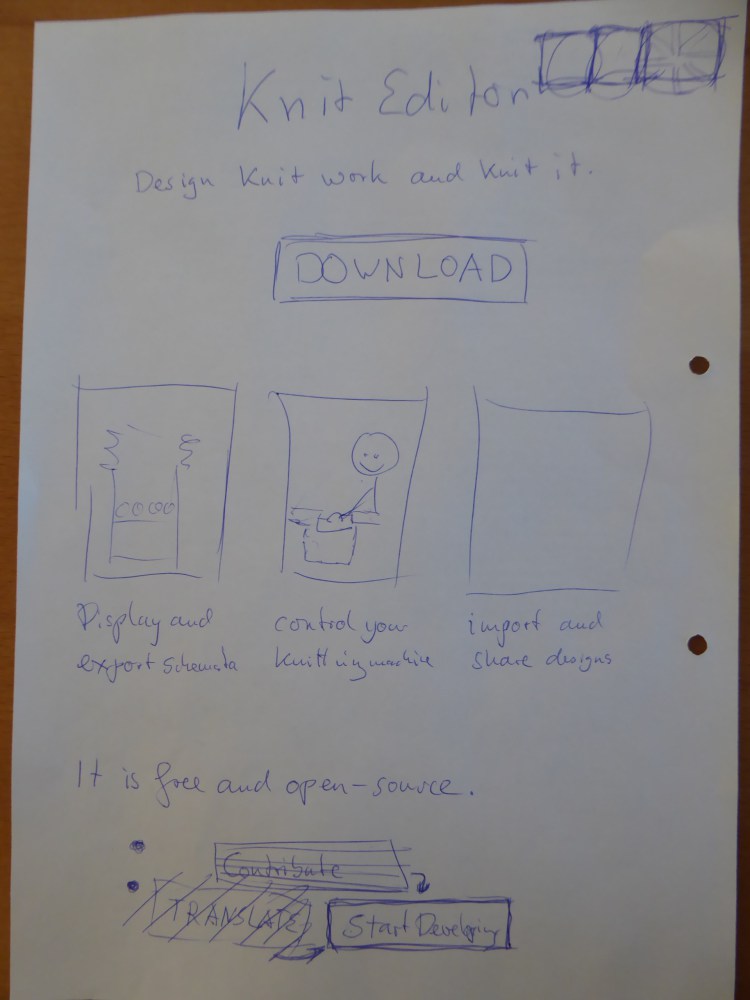 Knit Editor
Design Knit work and Knit it.
DOWNLOAD
Display and
export Schemata
control your
Knitting machine
import and
share designs
It is free and open-source.
Contribute
TRANSLATE
Start Developing